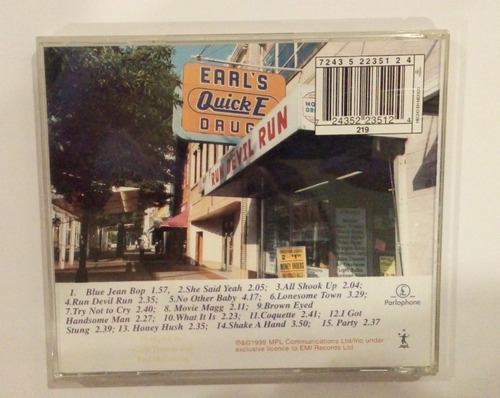 7243 5 22351 2 4
24352 23512 4
219
EARL'S
Quick E
DRUG
RUN DEVIL RUN
MONEY ORDERS
1. Blue Jean Bop 1.57, 2.She Said Yeah 2.05; 3.All Shook Up 2.04;
4.Run Devil Run 2.35; 5.No Other Baby 4.17; 6.Lonesome Town 3.29;
7.Try Not to Cry 2.40; 8. Movie Magg 2.11; 9.Brown Eyed
Handsome Man 2.27; 10.What It Is 2.23; 11.Coquette 2.41; 12.I Got
Stung 2.39; 13. Honey Hush 2.35; 14.Shake A Hand 3.50; 15. Party 2.37
Parlophone
℗&©1999 MPL Communications Ltd/Inc under
exclusive licence to EMI Records Ltd